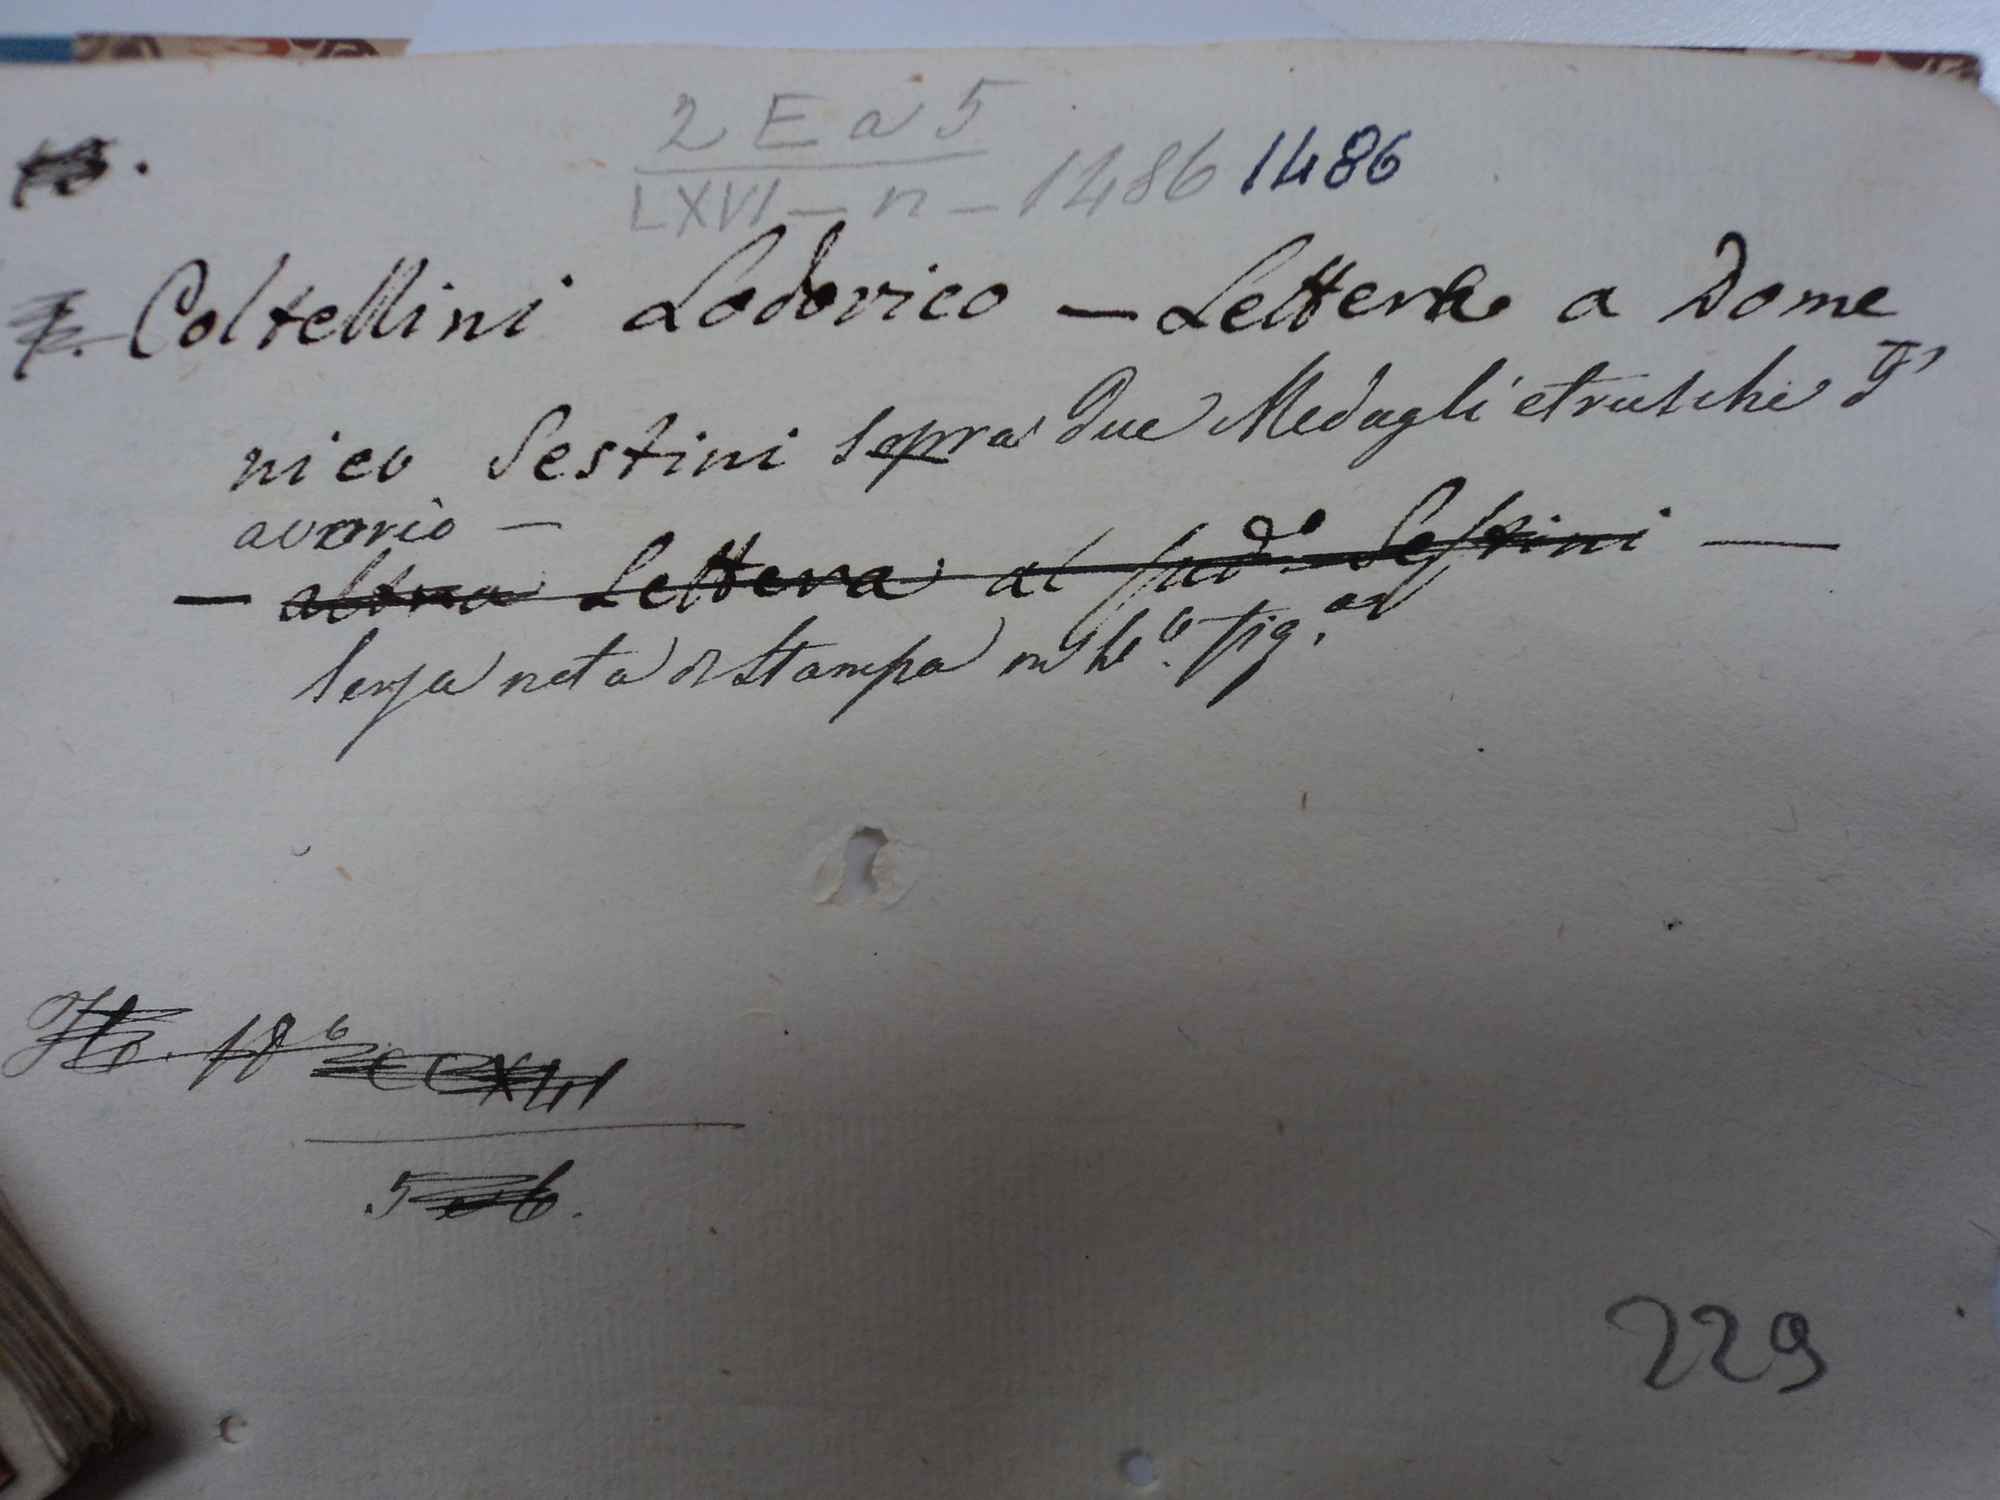 2 E a 5
LXVI - n - 1486 1486
Coltellini Lodovico — Lettera a Dome
nico Sestini sopra due Medagli etrusche d'
avorio —
— altra Lettera al sud.o Sestini —
senza nota di stampa in fig.
5 e 6.
229